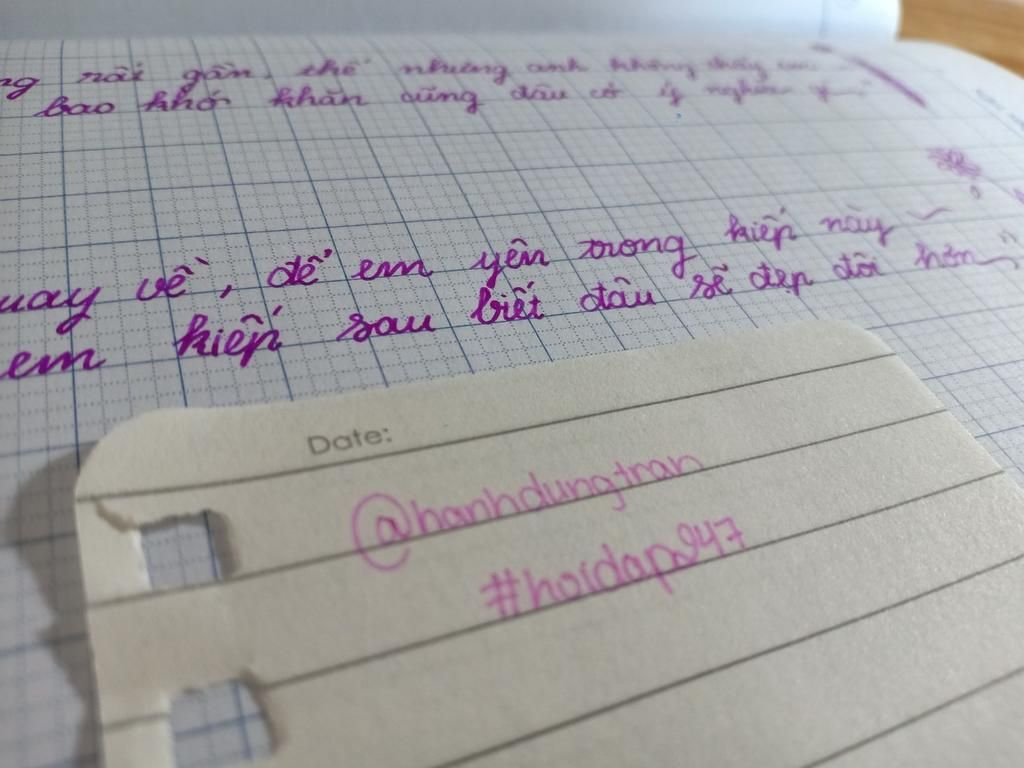 rất gần thế nhưng anh không thấy
bao khó khăn cũng đâu có ý nghĩa gì
quay về, để em yên trong kiếp này
em kiếp sau biết đâu sẽ đẹp đôi hơn
Date:
@hanhdungtran
#hoidap247